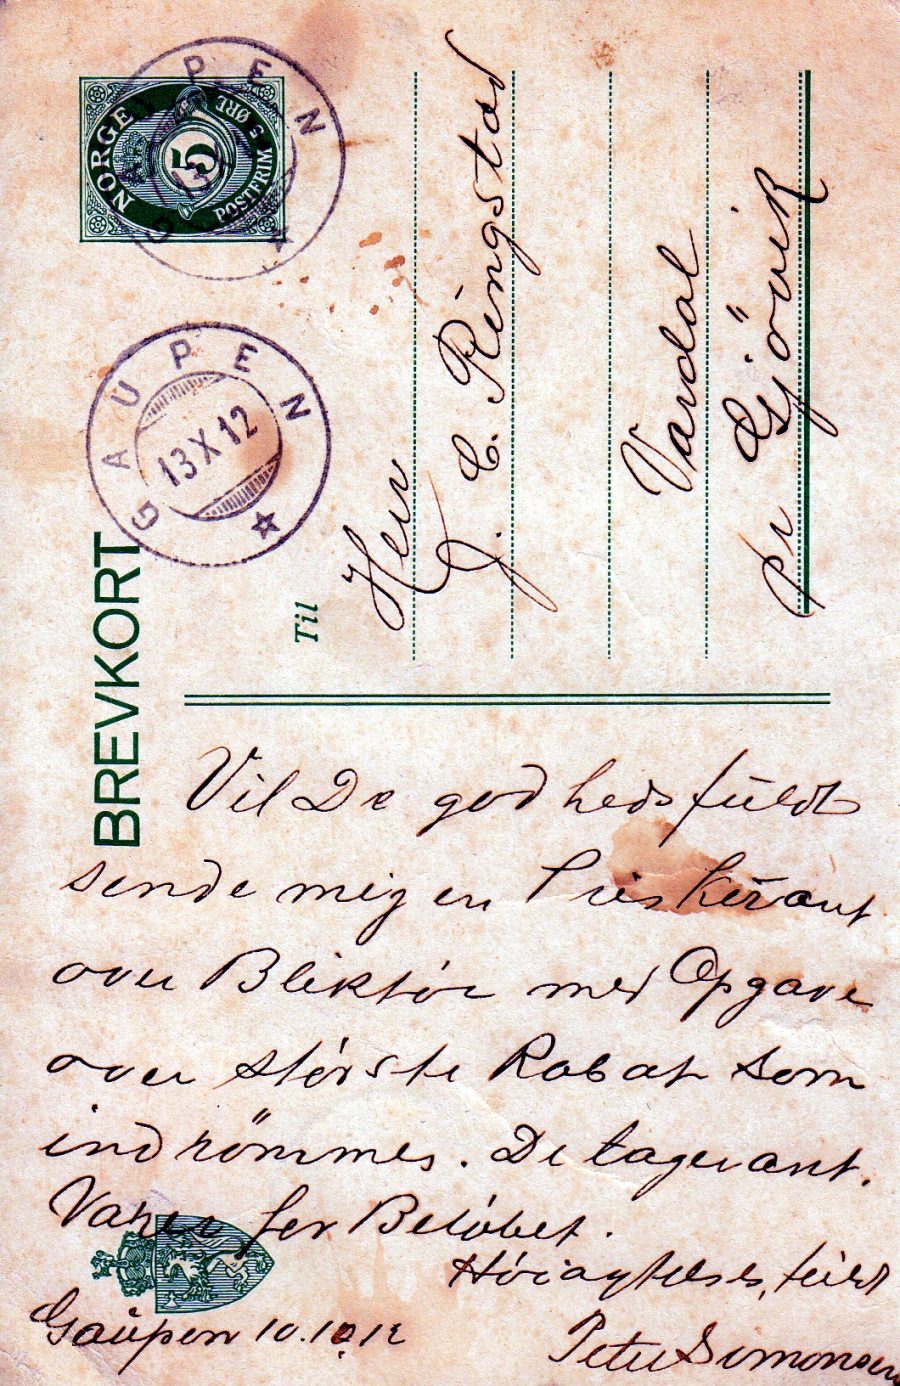 NORGE
5 ØRE 5
POSTFRIM
5
GAUPEN
GAUPEN
13 X 12
BREVKORT
Til
Herr
J. C. Ringstad
Vardal
pr Gjövik
Vil De godhedsfuldt
sende meg en Priskurant
over Bliktör med Opgave
over störste Rabat som
indrömmes. De tager ant.
Varer for Belöbet.
Höiagtelsesfuldt
Gaupen 10.10.12
Peter Simonsen